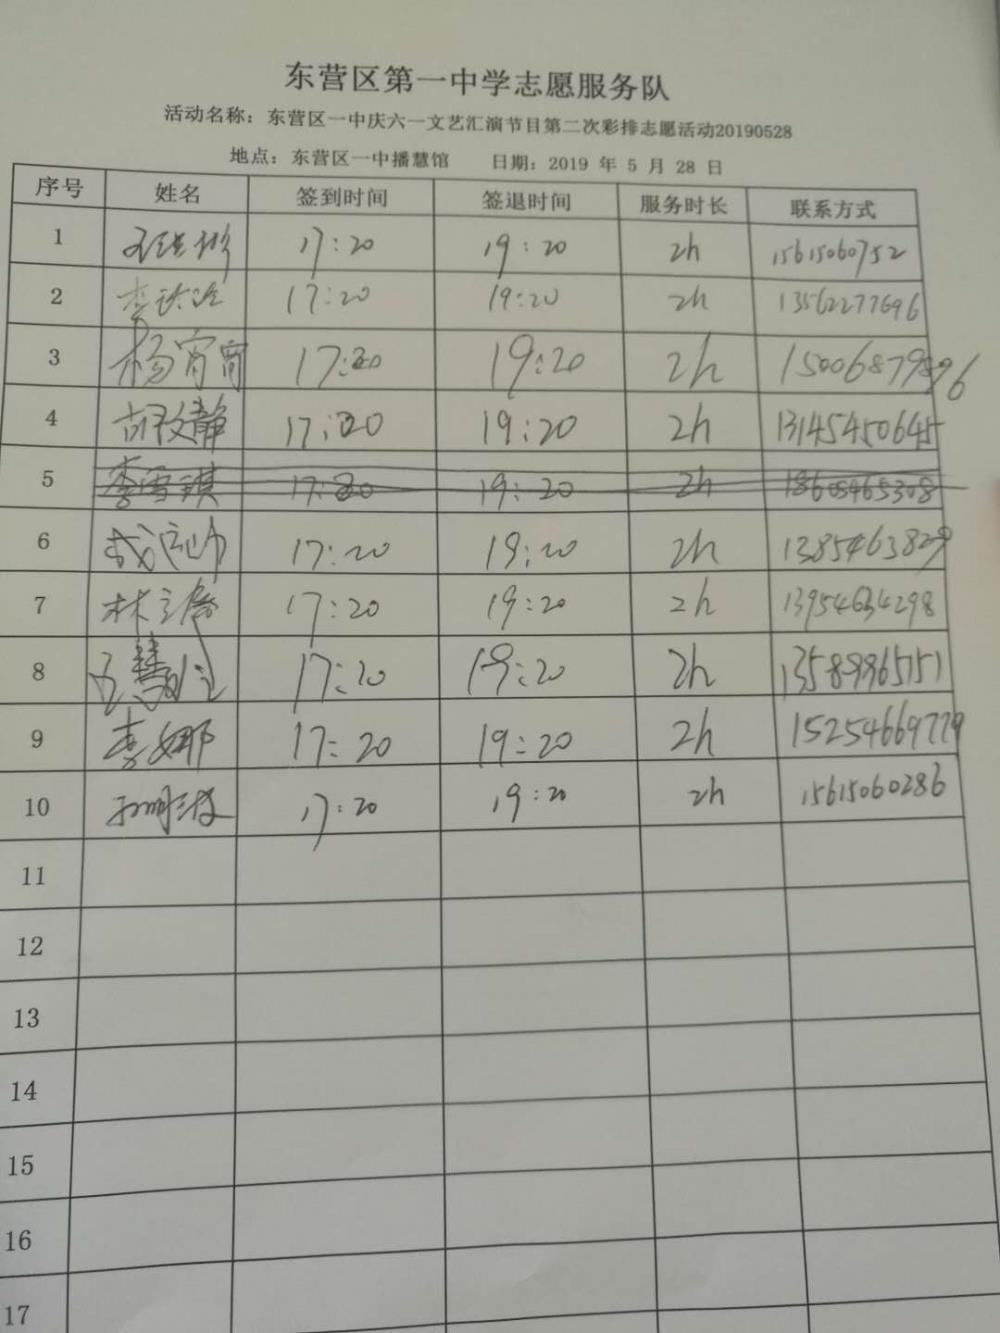 东营区第一中学志愿服务队
活动名称：东营区一中庆六一文艺汇演节目第二次彩排志愿活动20190528
地点：东营区一中播慧馆 日期：2019 年 5 月 28 日
序号 姓名 签到时间 签退时间 服务时长 联系方式
1 17:20 19:20 2h 15615060752
2 17:20 19:20 2h 13562277696
3 杨宵宵 17:20 19:20 2h 15006879896
4 胡文静 17:20 19:20 2h 13145450645
5 李雪琪 17:20 19:20 2h 18605465308
6 17:20 19:20 2h 1385463829
7 林 17:20 19:20 2h 13954634298
8 17:20 19:20 2h 13589965151
9 李娜 17:20 19:20 2h 15254669779
10 17:20 19:20 2h 15615060286
11
12
13
14
15
16
17